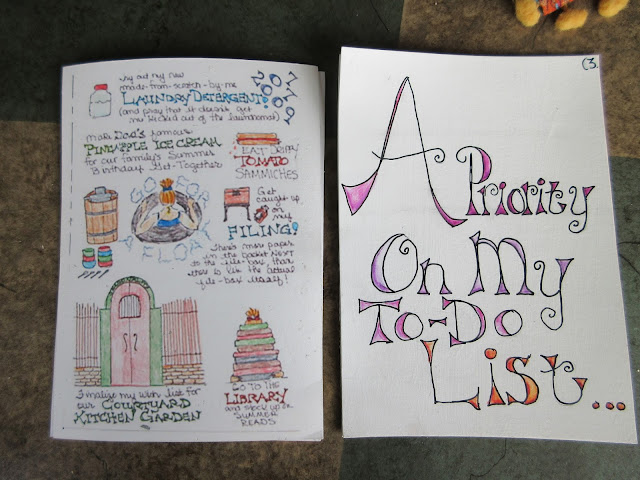 Try out my new
made-from-scratch-by-me
LAUNDRY DETERGENT!
(and pray that it doesn't get
me kicked out of the laundromat)
make Doc's famous
PINEAPPLE ICE CREAM
for our family's Summer
Birthday Get-Together
EAT DRIPPY
TOMATO
SAMMICHES
GO FOR
A FLOAT
Get
caught up
on my
FILING!
There's more paper
in the basket NEXT
to the file-box, than
there is in the actual
file-box itself!
Finalize my wish list for
our COURTYARD
KITCHEN GARDEN
GO TO THE
LIBRARY
and stock up on
SUMMER
READS
(3.
A Priority
On My
To-Do
List...